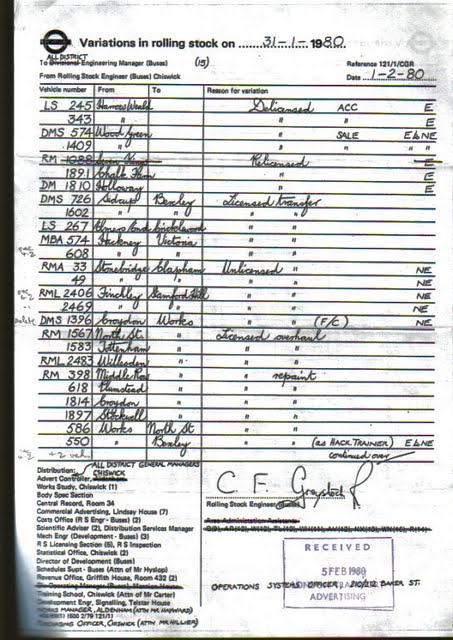 Variations in rolling stock on 31-1-1980
ALL DISTRICT
To Divisional Engineering Manager (Buses) (15) Reference 121/1/CGR
From Rolling Stock Engineer (Buses) Chiswick Date 1-2-80
Vehicle number From To Reason for variation
LS 245 Harrow Weald Delicensed ACC E
343 " " " E
DMS 574 Wood Green " SALE E & NE
1409 " " " " "
RM 1088 Relicensed E
1891 Chalk Farm " E
DM 1810 Holloway " E
DMS 726 Sidcup Bexley Licensed transfer
1602 " " " "
LS 267 Elmers End Cricklewood " "
MBA 574 Hackney Victoria " "
608 " " " "
RMA 33 Stonebridge Clapham Unlicensed " NE
49 " " " " NE
RML 2406 Finchley Stamford Hill " " NE
2469 " " " " NE
DMS 1396 Croydon Works " " (F/C) NE
RM 1567 North St. " Licensed overhaul
1583 Tottenham " " "
RML 2483 Willesden " " "
RM 398 Middle Row " " repaint
618 Plumstead " " "
1814 Croydon " " "
1897 Stockwell " " "
586 Works North St " "
550 " Bexley " " (as HACK TRAINER) E & NE
continued over
Distribution: ALL DISTRICT GENERAL MANAGERS
CHISWICK
Advert Controller, Aldenham
Works Study, Chiswick (1)
Body Spec Section
Central Record, Room 34
Commercial Advertising, Lindsay House (7)
Costs Office (R S Engr - Buses) (2)
Scientific Adviser (2), Distribution Services Manager
Mech Engr (Development - Buses) (3)
R S Licensing Section (5), R S Inspection
Statistical Office, Chiswick (2)
Director of Development (Buses)
Schedules Supt - Buses (Attn of Mr Hyslop)
Revenue Office, Griffith House, Room 432 (2)
Training School, Chiswick (Attn of Mr Carter)
Development Engr, Signalling, Telstar House
WORKS MANAGER, ALDENHAM (ATTN MR HAYWARD)
OFFICER, CHISWICK (ATTN MR HILLIER)
C F Graystock
Rolling Stock Engineer (Buses)
Area Administration Assistants
RECEIVED
5 FEB 1980
ADVERTISING
OPERATIONS SYSTEMS OFFICER, BAKER ST.